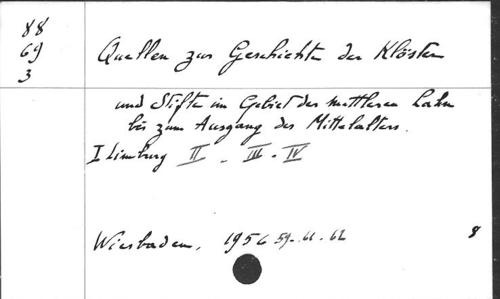 88
69
3
Quellen zur Geschichte der Klöster
und Stifte im Gebiet der mittleren Lahn
bis zum Ausgang des Mittelalters.
I Limburg II - III - IV
Wiesbaden, 1956 59-61-62
8